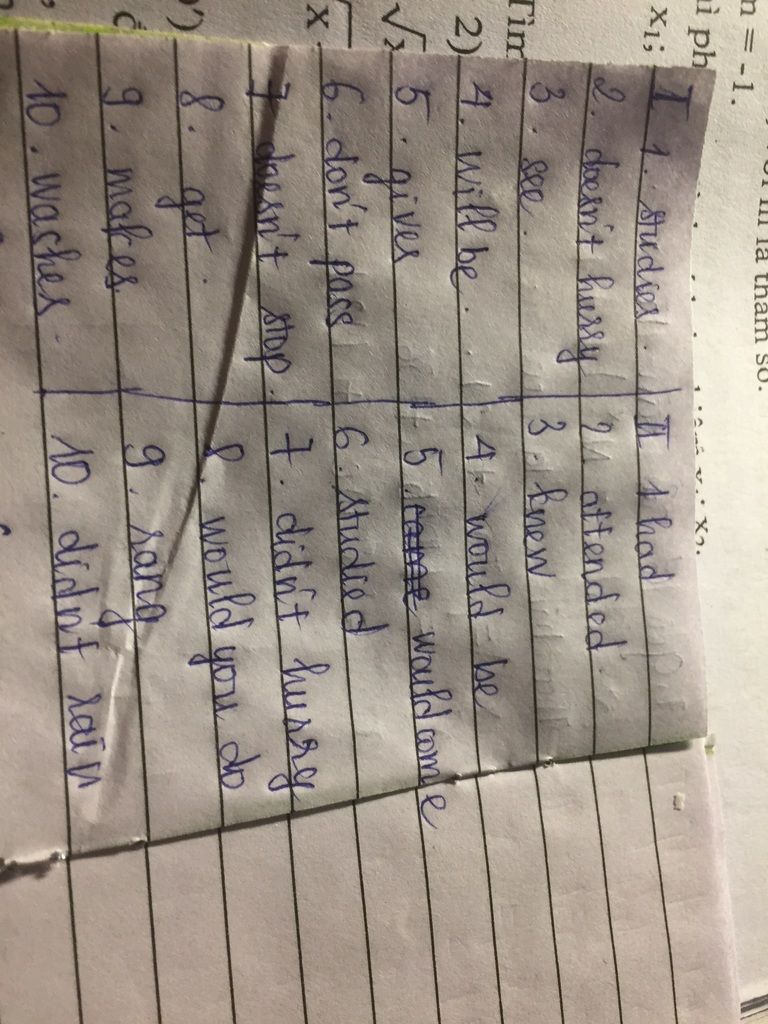 n = -1.
m là tham số.
ì ph
x₁;
Tìm
2)
I 1. studies.
2. doesn't hurry
3. see.
4. will be.
5. gives
6. don't pass
7 doesn't stop.
8. get.
9. makes
10. waches.
II 1 had
2. attended.
3. knew
4. would be
5 came would come
6. studied
7. didn't hurry
8. would you do
9. rang
10. didn't rain